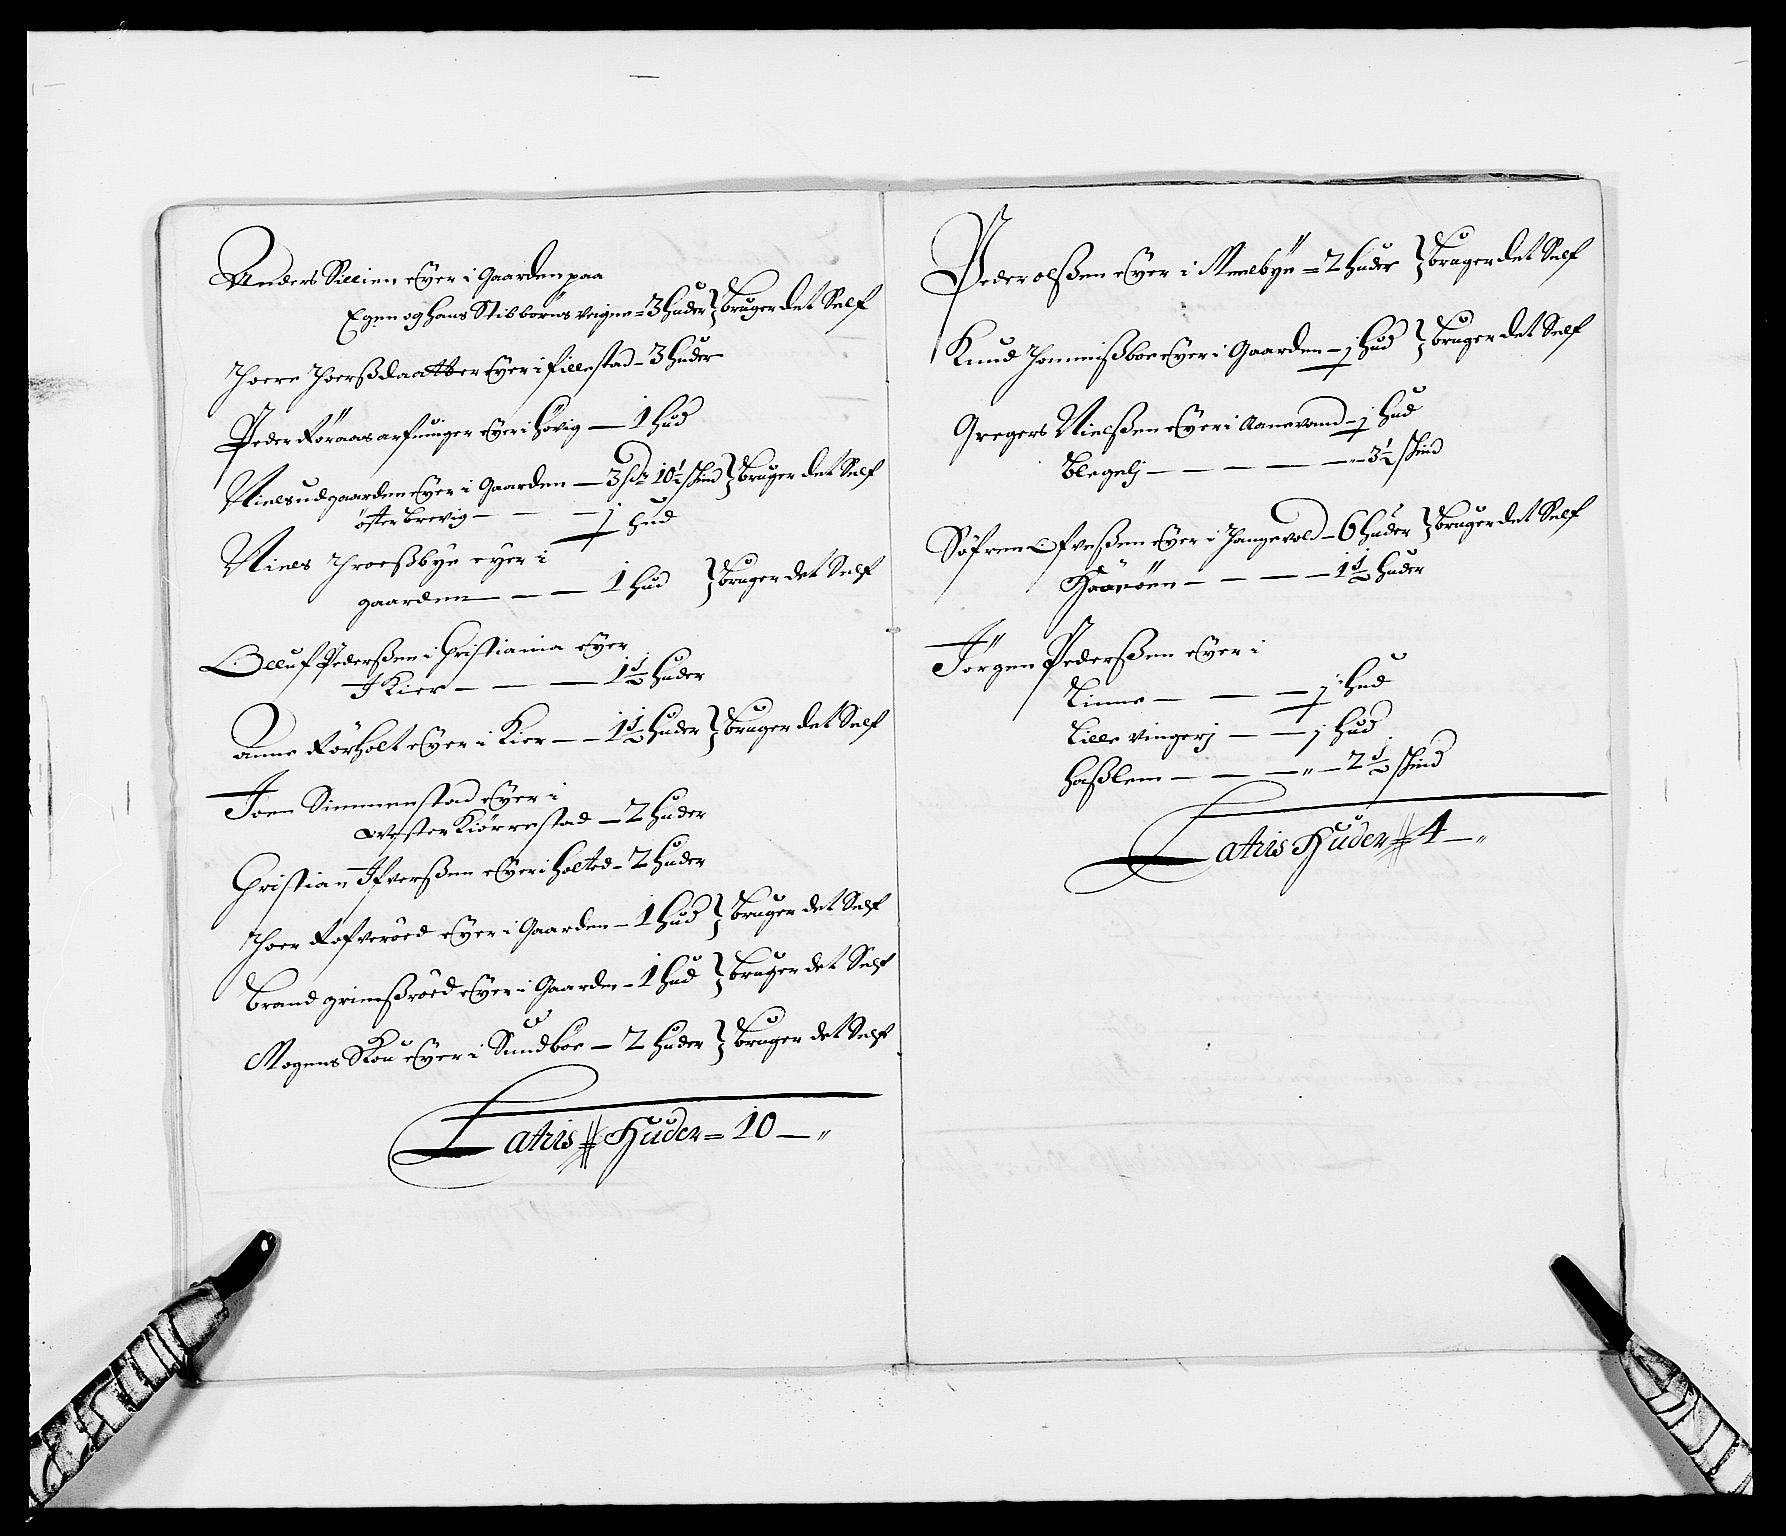 Anders Sillien Eyer i Gaarden paa
Egen og hans Stibbørns veigne = 3 huder } bruger det Self
Thore Thorsdaatter Eyer i fillestad - 3 huder
Peder Røraas arfuinger Eyer i Høvig — 1 hud
Niels udgaarden Eyer i Gaarden — 3 10½ skind } bruger det Self
øster brevig - - - ½ hud
Niels Throesbye eyer i
gaarden - - - 1 hud } bruger det Self
Olluf Pederssen i Christiania eyer
I Kier - - - 1½ huder
Anne Rørholt Eyer i Kier - - 1½ huder } bruger det Self
Joen Simmenstad Eyer i
vester Kiørrestad - 2 huder
Christian Ifverssen Eyer i Holted - 2 huder
Thor Rofverøed Eyer i Gaarden - 1 hud } bruger det Self
Brand grimsrøed Eyer i Gaarden - 1 hud } bruger det Self
Mogens Skou Eyer i Sundbøe - 2 huder } bruger det Self
Latris # Huder = 10 — "
Peder olssen Eyer i Meelbye = 2 huder } bruger det Self
Knud Eyer i Gaarden - ½ hud } bruger det Self
Gregers Nielssen Eyer i Aanevand - ½ hud
Blegelj - - - - - " - 3½ skind
Søfren Ofvessen Eyer i Jangevold - 6 huder } bruger det Self
Haaøen - - - - 1½ huder
Jørgen Pederssen Eyer i
Linne - - - - ½ hud
Lille vingerj - - 1 hud
Hasslem - - - " - 2½ skind
Latris Huder # 4 — "